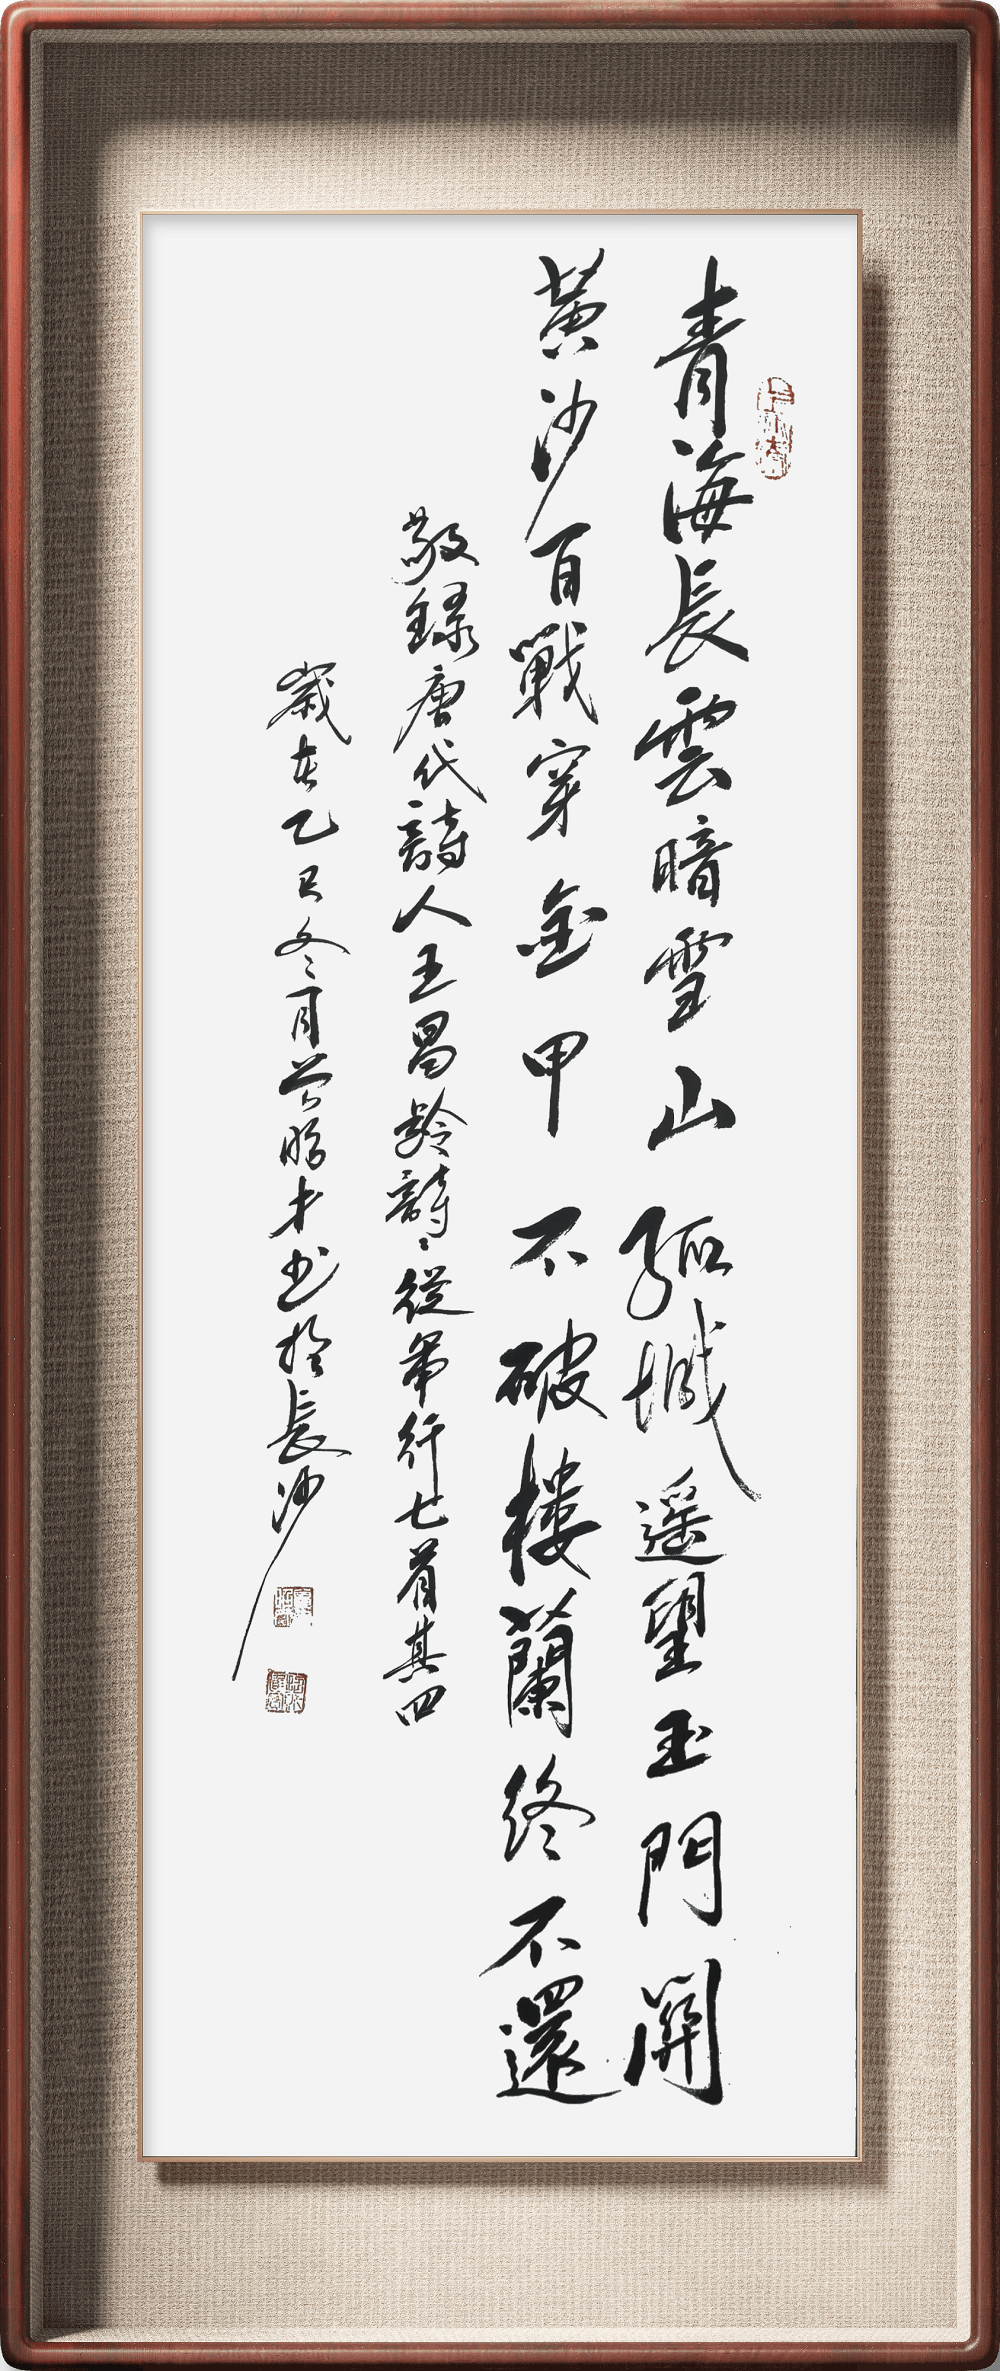 青海長雲暗雪山孤城遥望玉門關
黄沙百戰穿金甲不破楼蘭終不還
敬録唐代詩人王昌齡詩從軍行七首其四
歲在乙巳冬月曾勝才书於長沙